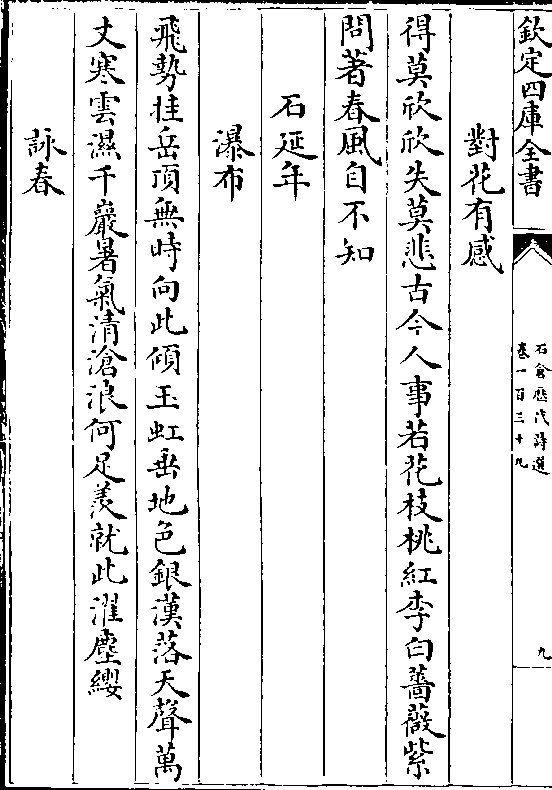 欽定四庫全書
石倉歷代詩選
卷一百三十九
九
對花有感
得莫欣欣失莫悲古今人事若花枝桃紅李白薔薇紫
問著春風自不知
石延年
瀑布
飛勢挂岳頂無時向此傾玉虹垂地色銀漢落天聲萬
丈寒雲濕千巖暑氣清滄浪何足羨就此濯塵纓
詠春